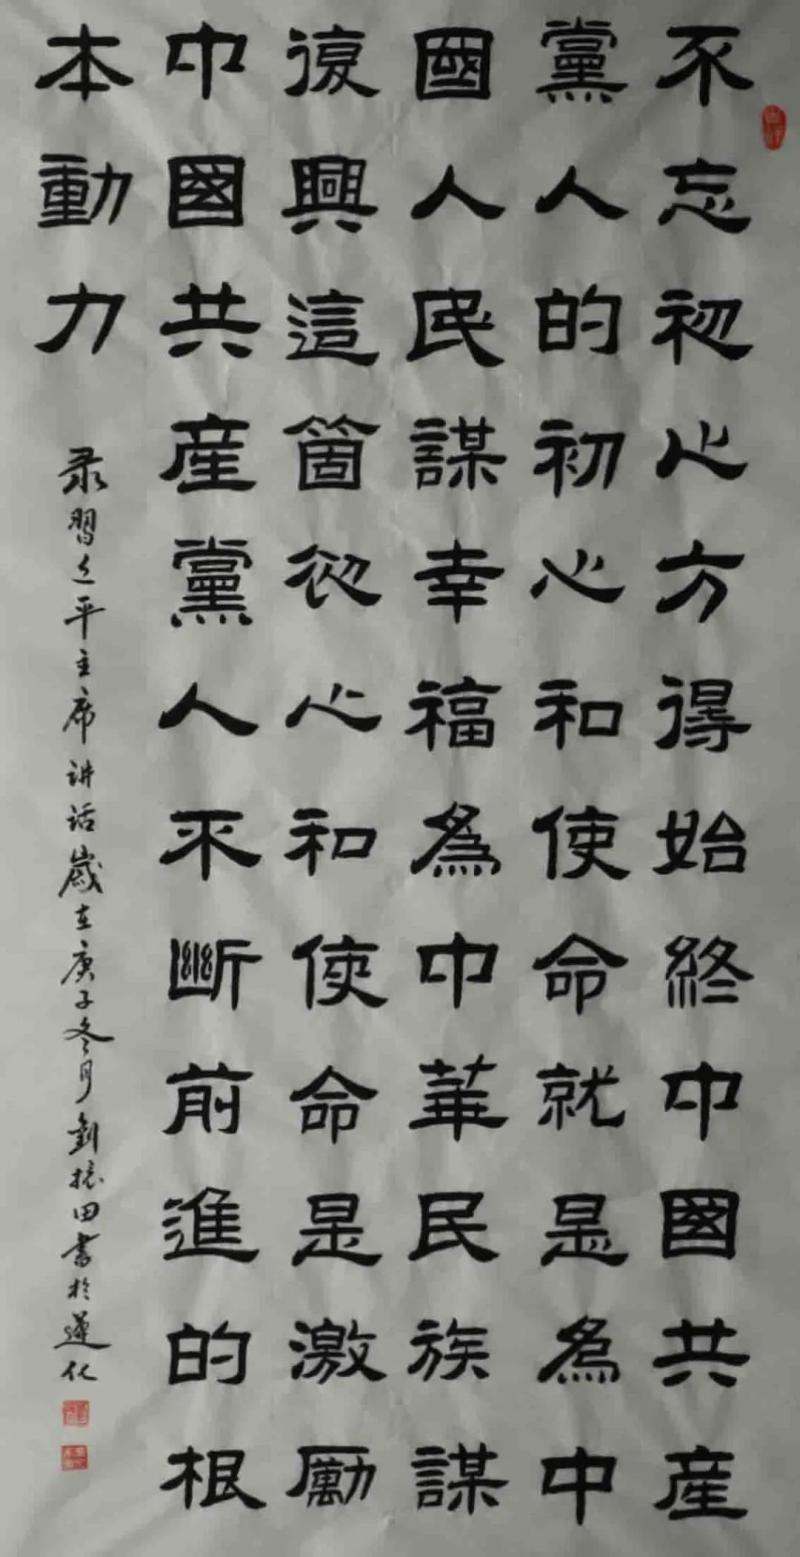 不忘初心方得始終中國共産
黨人的初心和使命就是為中
國人民謀幸福為中華民族謀
復興這箇初心和使命是激勵
中國共産黨人不斷前進的根
本動力
录習近平主席讲话歲在庚子冬月劉振田書於遵化